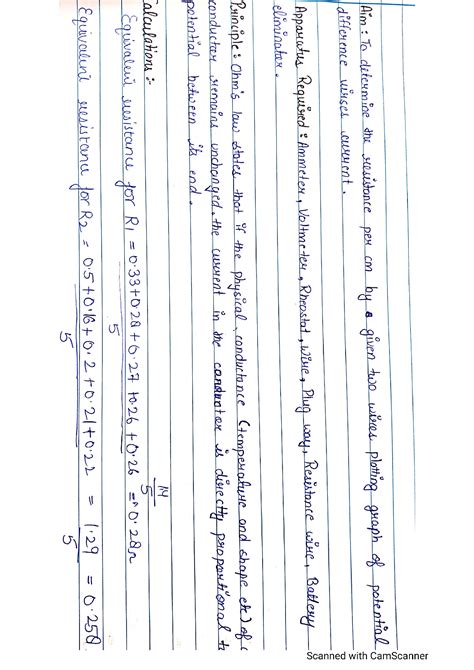 Aim: To determine the resistance per cm by a given two wires plotting graph of potential
difference virses current.
Apparatus Required: Ammeter, Voltmeter, Rheostat, wire, Plug way, Resistance wire, Battery
eliminator.
Principle: Ohm's law states that if the physical, conductance (temperature and shape etc) of
conductor remains unchanged, the current in the conductor is directly proportional t
potential between its end.
alculation:-
14
5
Equivalent resistance for R1 = 0.33+0.28+0.27+0.26+0.26 = 0.28Ω
5
Equivalent resistance for R2 = 0.5+0.16+0.2+0.21+0.22 = 1.29 = 0.258
5 5
Scanned with CamScanner